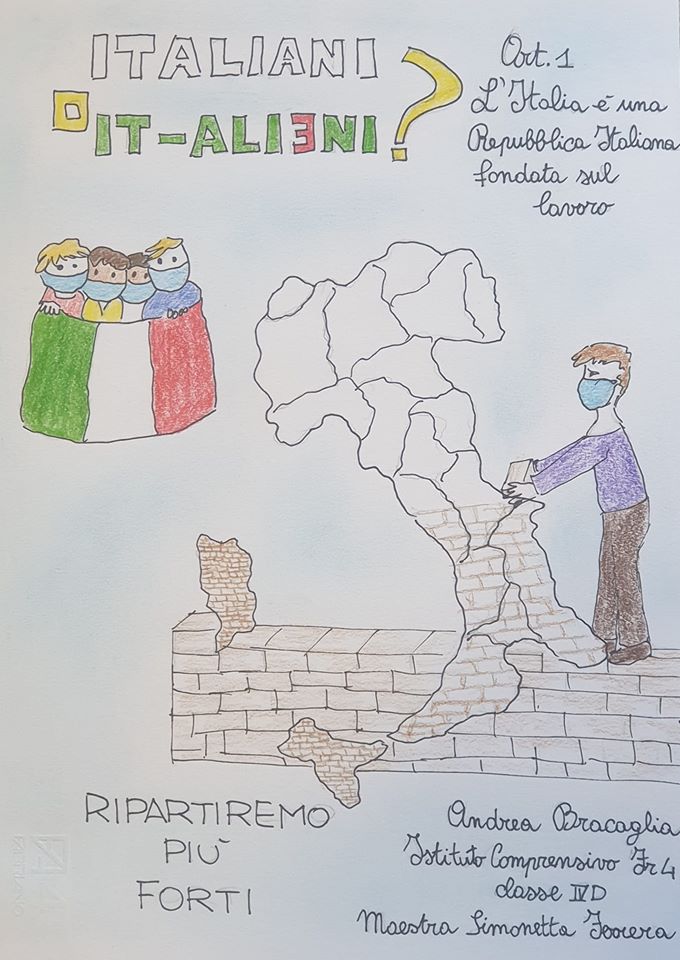 ITALIANI
O IT-ALIENI?
Art. 1
L'Italia è una
Repubblica Italiana
fondata sul
lavoro
RIPARTIREMO
PIÙ
FORTI
Andrea Bracaglia
Istituto Comprensivo Fr 4
classe IV D
Maestra Simonetta